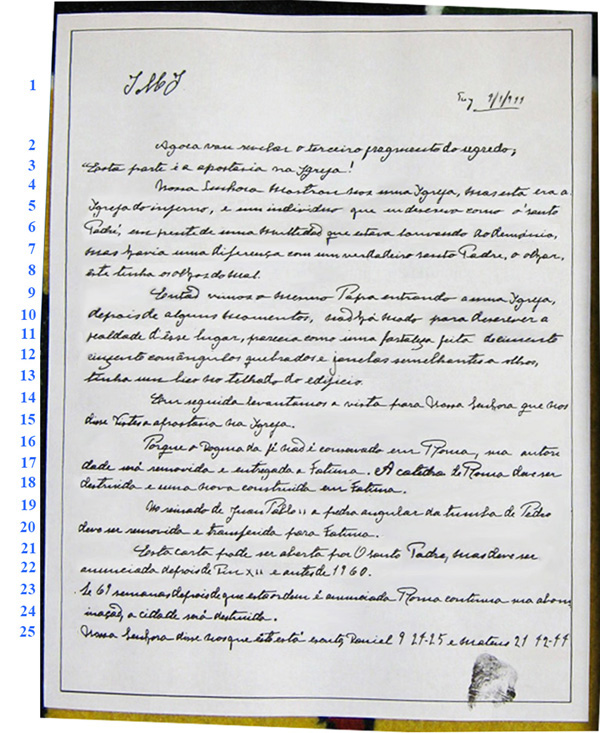 1
JMJ
Tuy 1/4/1944
2
Agora vou revelar o terceiro fragmento do segredo;
3
"Esta parte é a apostasia na Igreja!
4
Nossa Senhora mostrou nos uma Igreja, mas esta era a
5
Igreja do inferno, e um individuo que eu descrevo como o 'santo
6
Padre', em frente de uma multidaõ que estava louvando ao demónio,
7
mas havia uma diferença com um verdadeiro santo Padre, o olhar,
8
este tinha os olhos do mal.
9
Entaõ vimos o mesmo Papa entrando a uma Igreja,
10
depois de alguns momentos, naõ há modo para descrever a
11
fealdade d'esse lugar, parecia como uma fortaleza feita de cimento
12
cinzento com ângulos quebrados e janelas semelhantes a olhos,
13
tinha um bico no telhado do edificio.
14
Em seguida levantamos a vista para Nossa Senhora que nos
15
disse Vistes a apostasia na Igreja.
16
Porque o Dogma da fé naõ é conservado em Roma, sua autori
17
dade será removida e entregada a Fatima. A catedral de Roma deve ser
18
destruida e uma nova construida em Fatima.
19
No reinado de Juan Pablo II a pedra angular da tumba de Pedro
20
deve ser removida e transferida para Fatima.
21
Esta carta pode ser aberta por O santo Padre, mas deve ser
22
anunciada depois de Pio XII e antes de 1960.
23
Se 69 semanas depois de que esta ordem é anunciada Roma continua sua abom
24
inaçaõ, a cidade será destruida.
25
Nossa Senhora disse nos que isto está escrito, Daniel 9 24-25 e Mateus 21 42-44